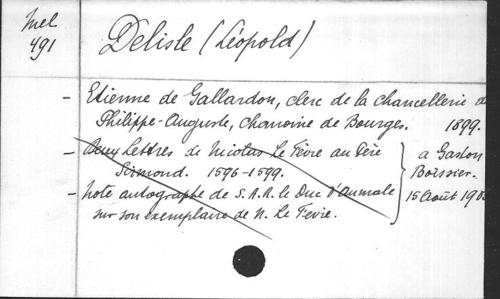 Mel
491
Delisle (Léopold)
- Etienne de Gallardon, clerc de la chancellerie de
Philippe-Auguste, Chanoine de Bourges. 1899.
- Deux Lettres de Nicolas Le Fèvre au Père
Sirmond. 1596-1599.
- Note autographe de S.A.R. le Duc d'Aumale
sur son exemplaire de N. Le Fevre.
a Gaston
Boissier.
15 Août 19